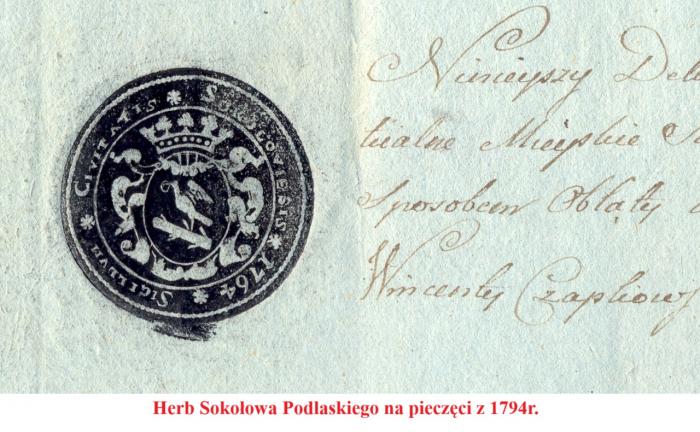 SIGILLUM * CIVITATIS * SOKOLOVIESIS * 1764 *
Ninieyszy De
Mieyskie
Sposobem Oblaty
Wincenty Czapliows
Herb Sokołowa Podlaskiego na pieczęci z 1794r.